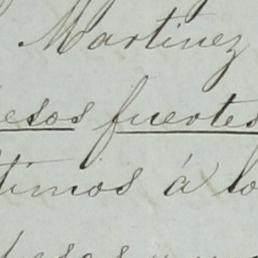 Martinez
esos fuertes
timos á lo